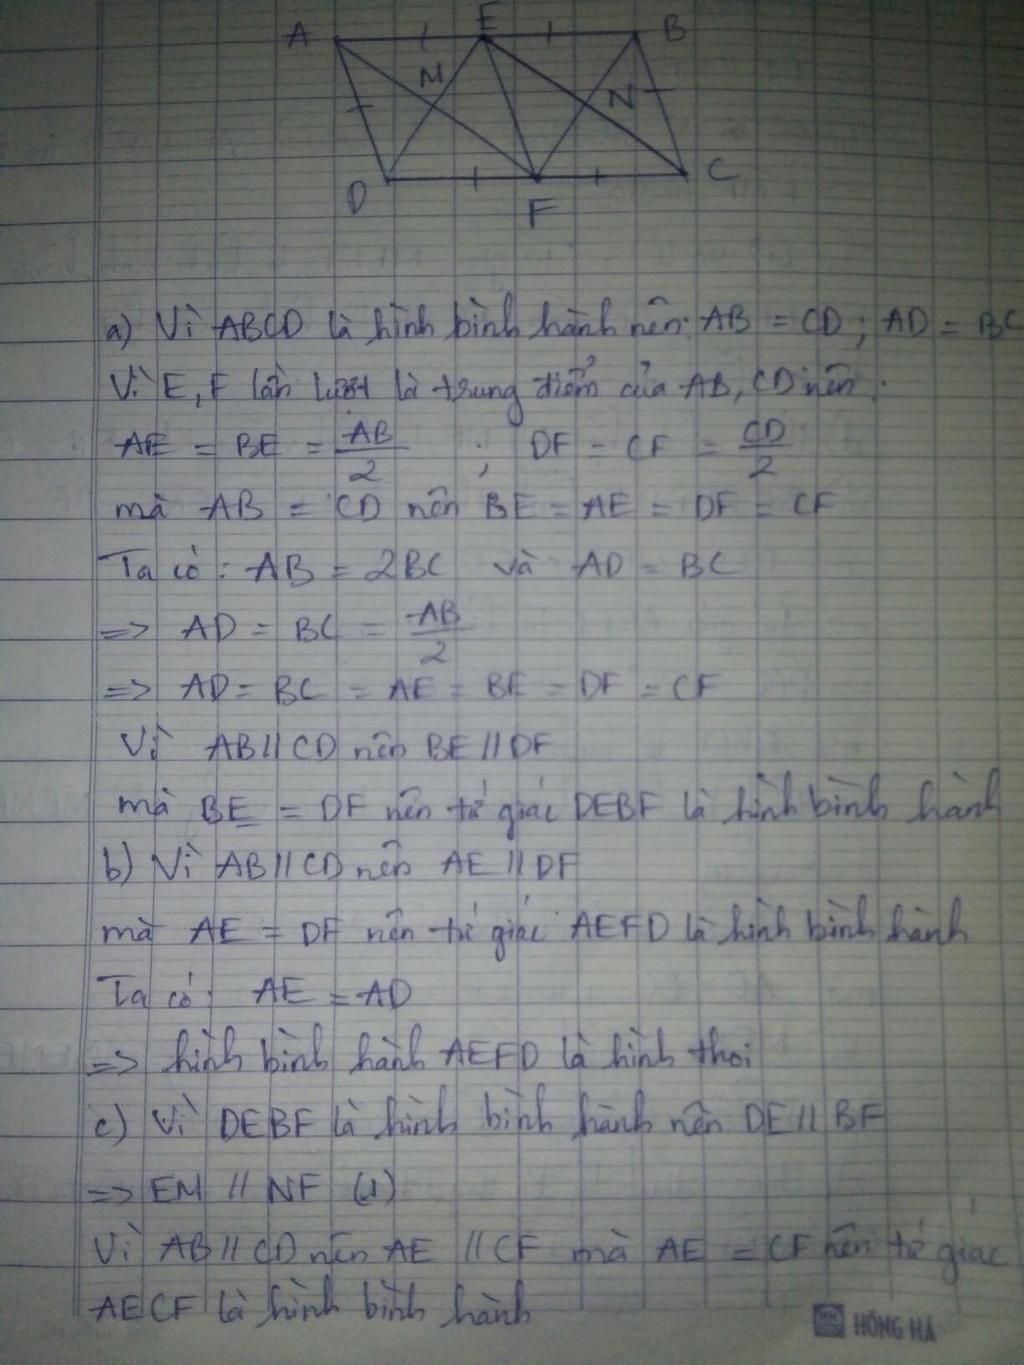 A E B
M
N
D F C
a) Vì ABCD là hình bình hành nên: AB = CD; AD = BC
Vì E, F lần lượt là trung điểm của AB, CD nên:
AE = BE = AB/2 ; DF = CF = CD/2
mà AB = CD nên BE = AE = DF = CF
Ta có: AB = 2BC và AD = BC
=> AD = BC = AB/2
=> AD = BC = AE = BE = DF = CF
Vì AB // CD nên BE // DF
mà BE = DF nên tứ giác DEBF là hình bình hành
b) Vì AB // CD nên AE // DF
mà AE = DF nên tứ giác AEFD là hình bình hành
Ta có: AE = AD
=> hình bình hành AEFD là hình thoi
c) Vì DEBF là hình bình hành nên DE // BF
=> EM // NF (1)
Vì AB // CD nên AE // CF mà AE = CF nên tứ giác
AECF là hình bình hành
HỒNG HÀ